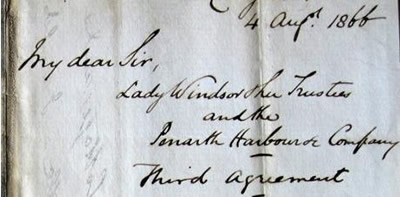 4 Augt. 1866
My dear Sir,
Lady Windsor & her Trustees
and the
Penarth Harbour & Company
Third Agreement